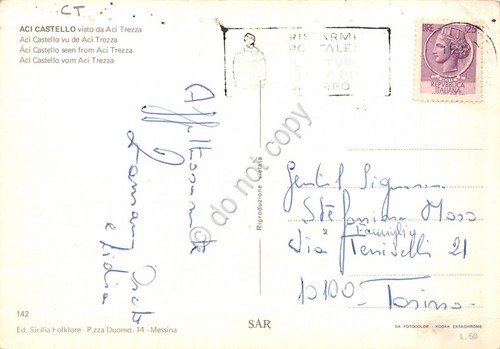 CT.
ACI CASTELLO visto da Aci Trezza
Aci Castello vu de Aci Trezza
Aci Castello seen from Aci Trezza
Aci Castello vom Aci Trezza
RISPARMI
POSTALE
LIRE 25
REPUBBLICA
ITALIANA
Affettuosamente
e Lidia
© do not copy
Riproduzione vietata
Gentil Signora
Stefania
e Famiglia
Via 21
10100 - Torino
142
Ed. Sicilia Folklore - P.zza Duomo, 14 - Messina
SAR
DA FOTOCOLOR KODAK EKTACHROME
L. 50